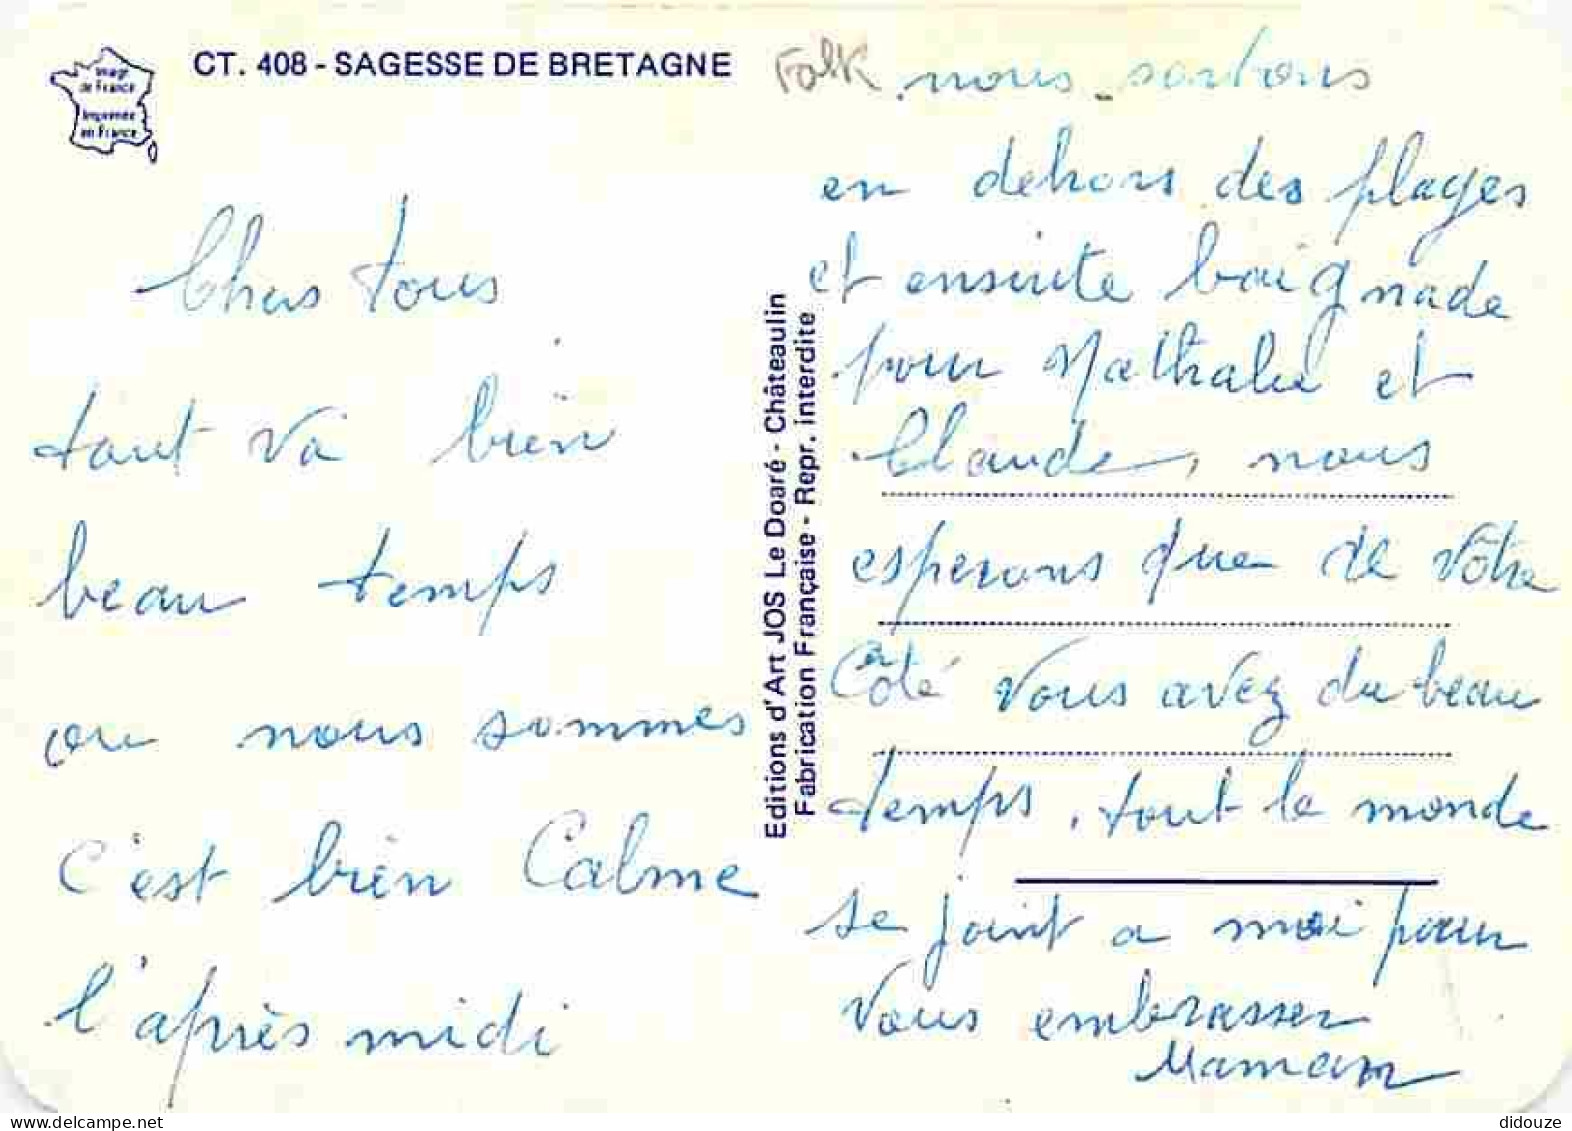 Image
de France
Imprimée
en France
CT. 408 - SAGESSE DE BRETAGNE
Chers tous
tout va bien
beau temps
ou nous sommes
c'est bien Calme
l'après midi
Editions d'Art JOS Le Doaré - Châteaulin
Fabrication Française - Repr. interdite
Folk
nous sortons
en dehors des plages
et ensuite baignade
pour Nathalie et
Claude, nous
esperons que de vôtre
Côté vous avez du beau
temps, tout le monde
se joint a moi pour
vous embrasser
Maman
didouze